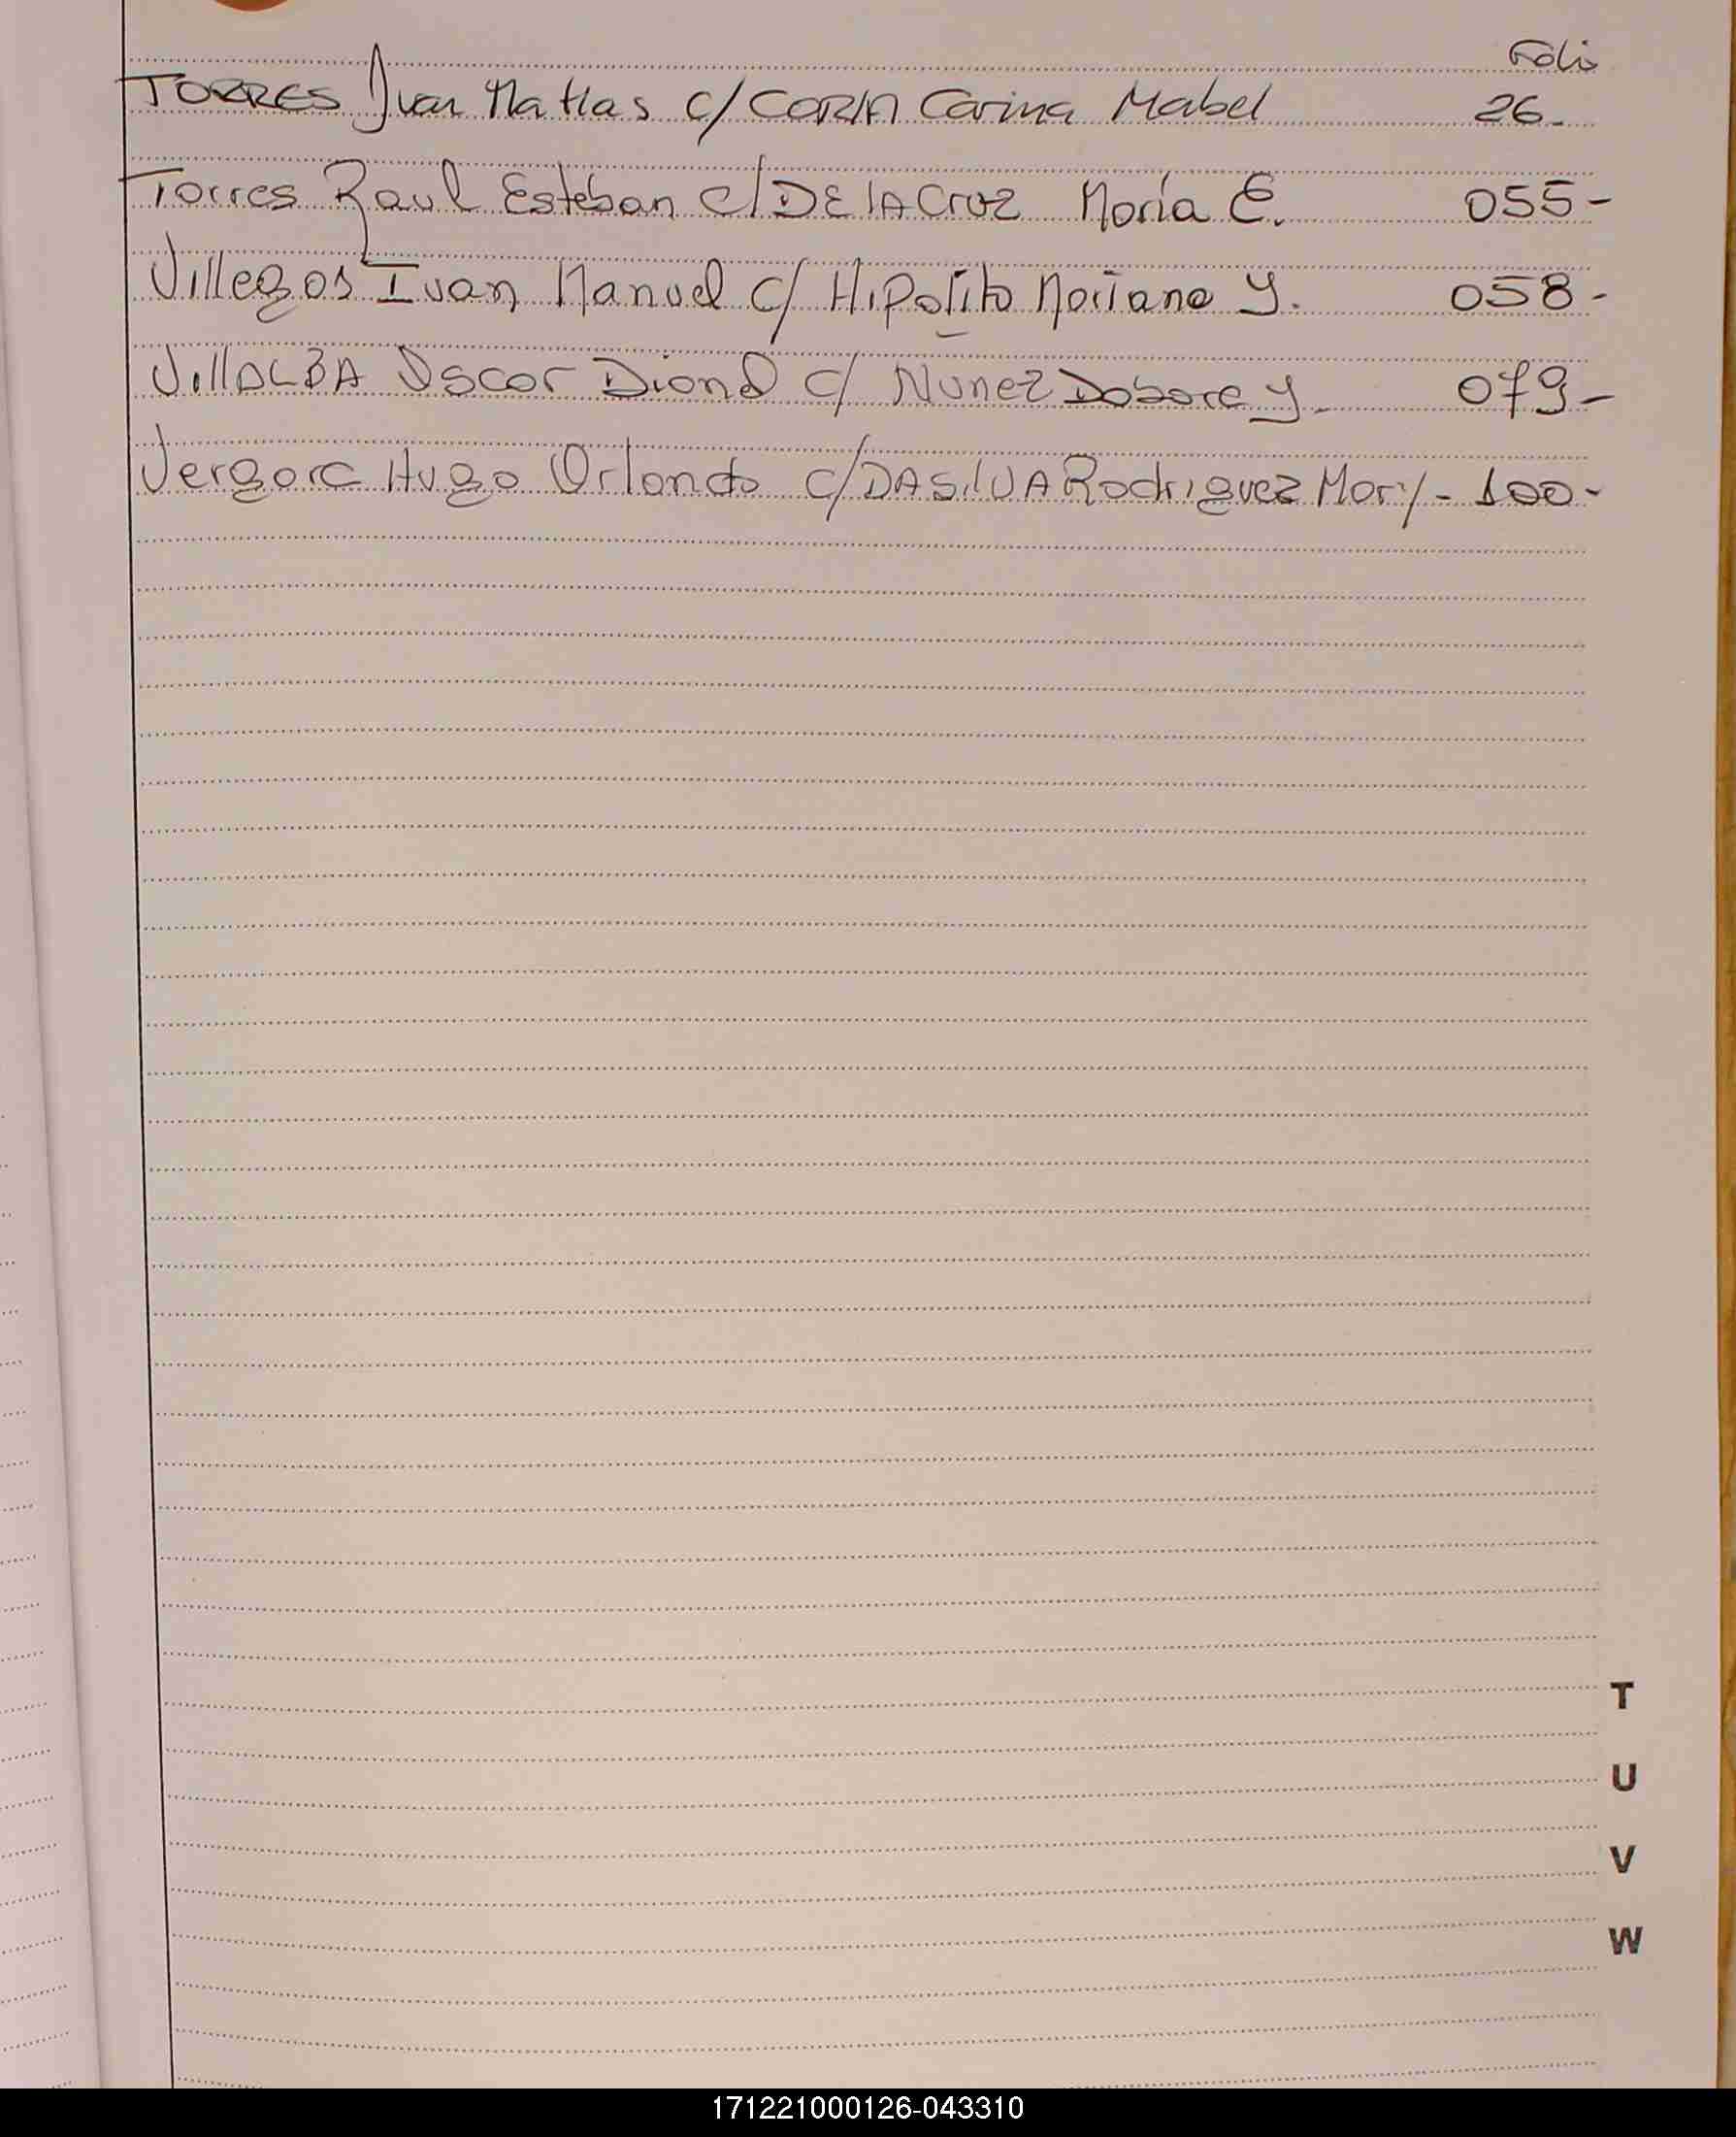 Folio
TORRES Juan Matias c/ CORIA Carina Mabel 26-
Torres Raul Esteban c/ DE lA Cruz María E. 055-
Villegas Ivan Manuel c/ Hipolito Mariana Y. 058-
VillALBA Oscar Dionel c/ Nunez Debora y - 079-
Vergara Hugo Orlando c/ DA SilVA Rodriguez Mary - 100-
T
U
V
W
171221000126-043310